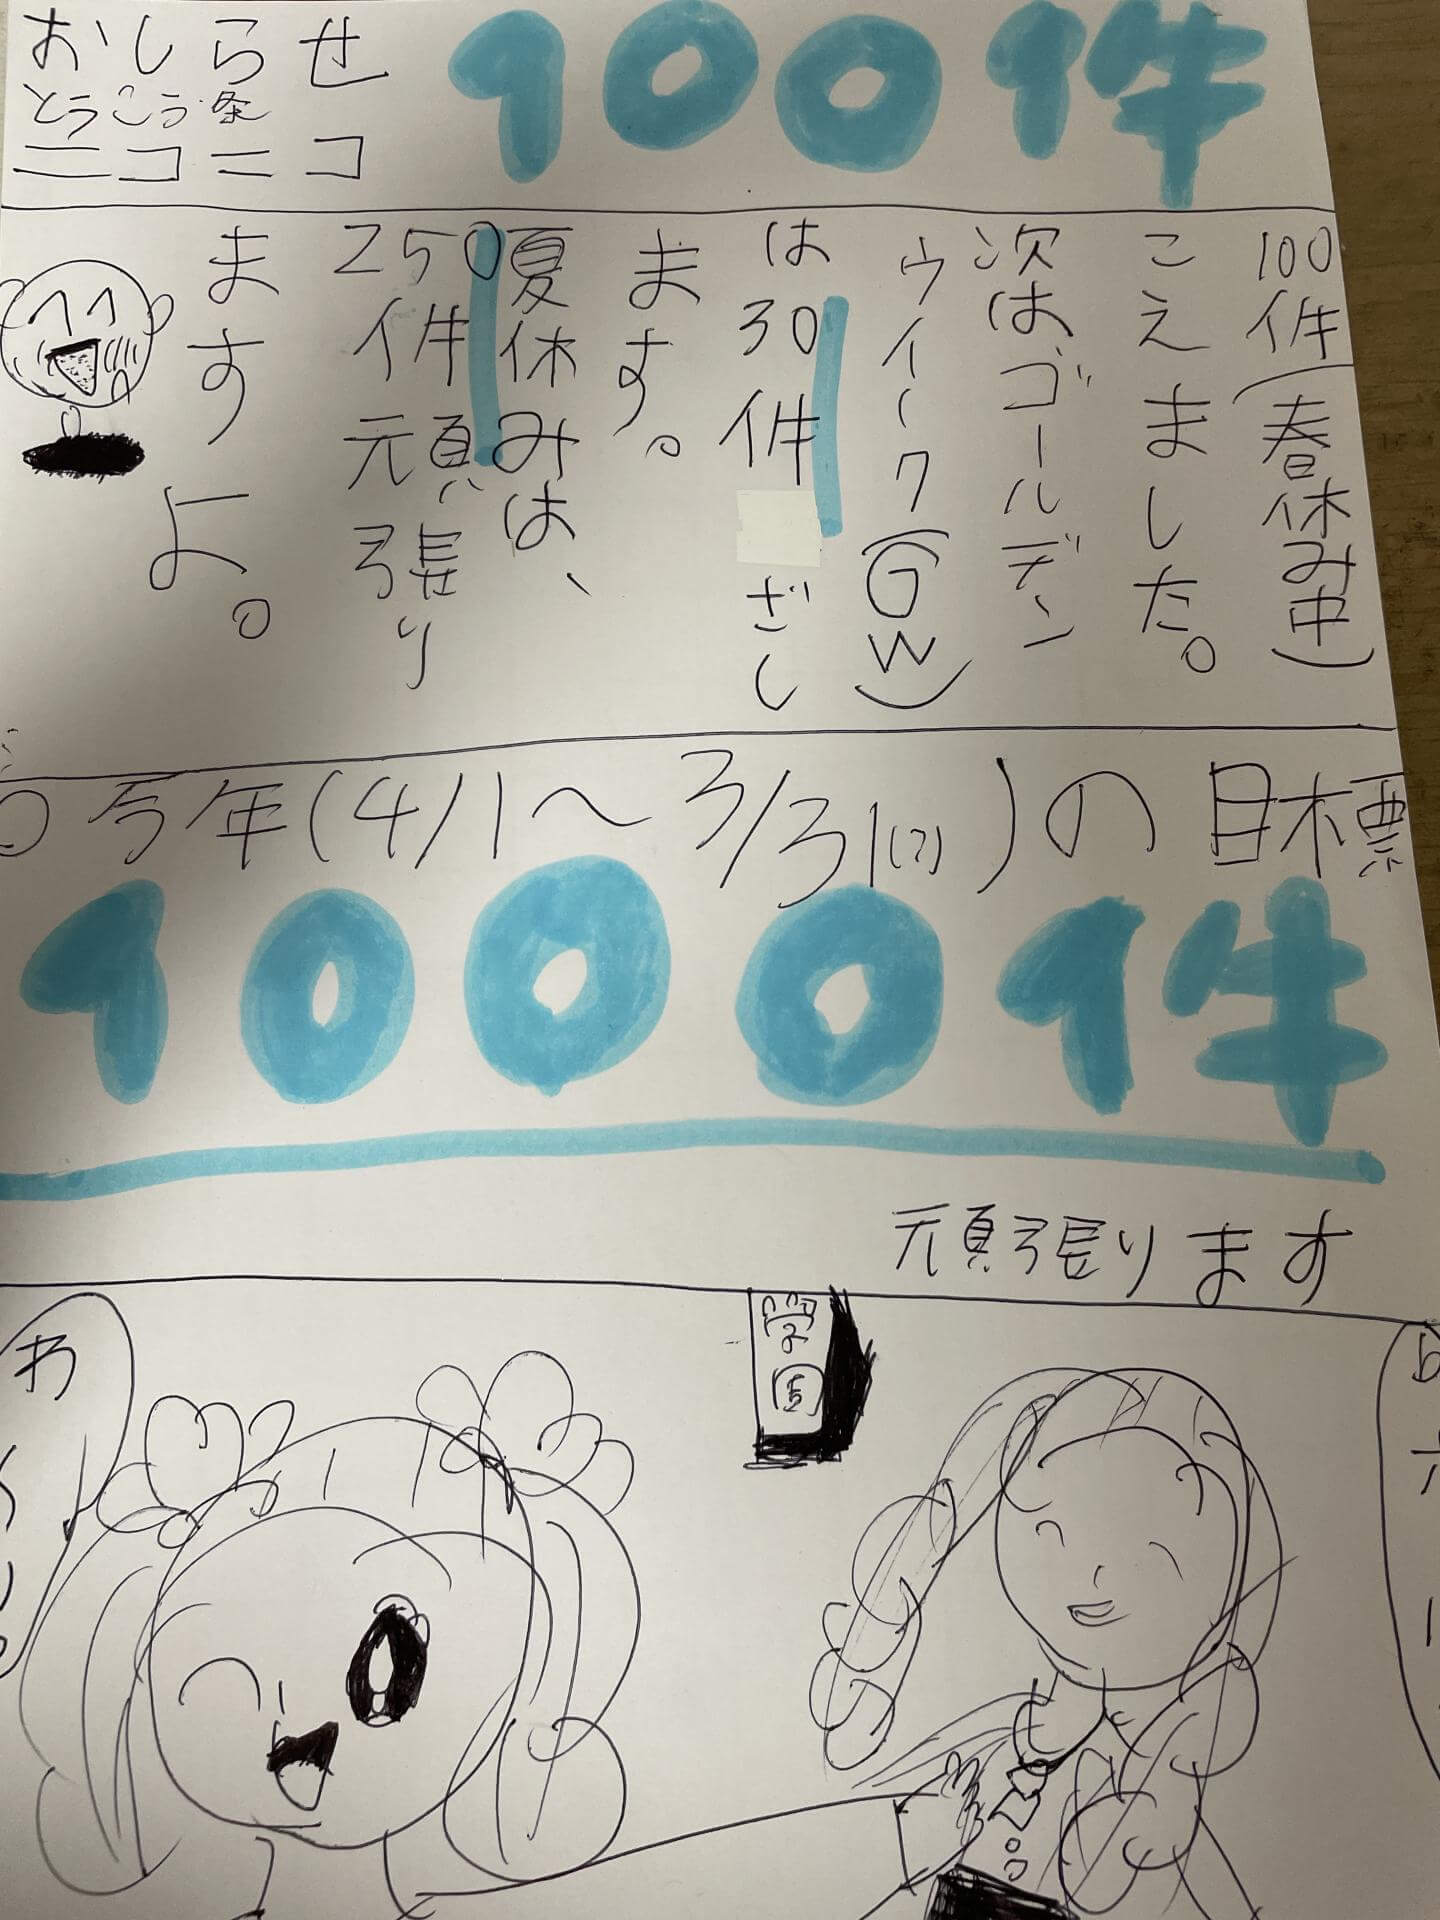 おしらせ
とうこう祭
ニコニコ
1001件
100件(春休み中)
こえました。
次はゴールデン
ウイーク(GW)
は30件
ざし
ます。
夏休みは、
250件頑張り
ます
よ。
今年(4/1～3/31(?))の目標
10001件
頑張ります
学園
わ